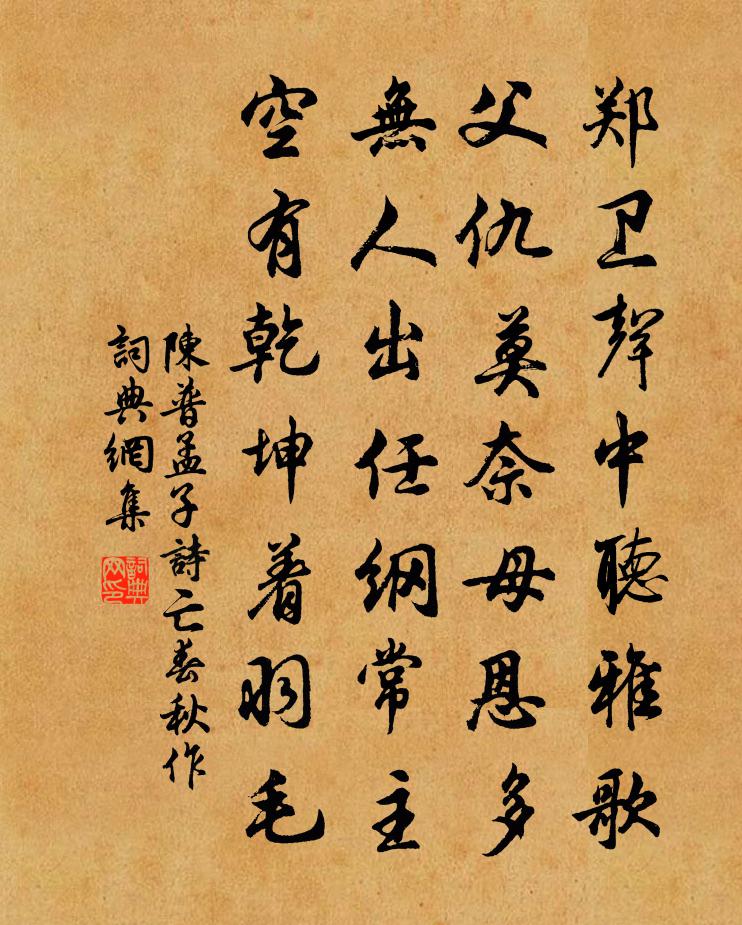 郑卫聲中聴雅歌
父仇莫奈母恩多
無人出任纲常主
空有乾坤着羽毛
陳普孟子詩亡春秋作
詞典網集
詞典网印